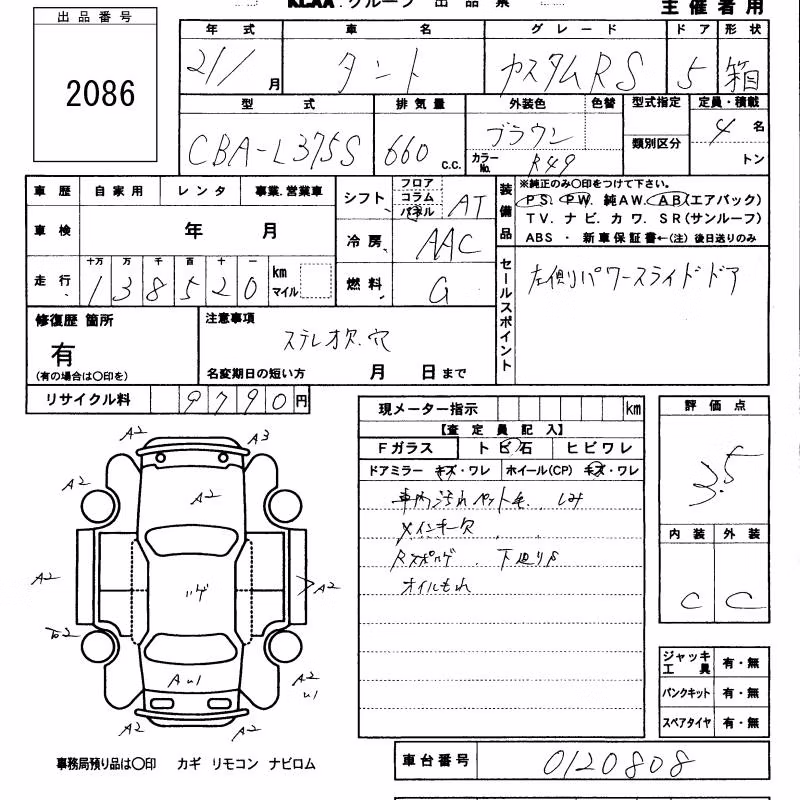 KLAA.グループ 出品票
主催者用
出品番号
2086
年式 車名 グレード ドア 形状
21/ 月 タント カスタムRS 5 箱
型式 排気量 外装色 色替 型式指定 定員・積載
CBA-L375S 660 c.c. ブラウン 類別区分 4 名
カラーNo. R49 トン
車歴 自家用 レンタ 事業.営業車
車検 年 月
走行 十万 万 千 百 十 一
1 3 8 5 2 0 km マイル
シフト フロア コラム パネル AT
冷房 AAC
燃料 G
装備品 ※純正のみ○印をつけて下さい。
PS. PW. 純AW. AB(エアバック)
TV. ナビ. カワ. SR(サンルーフ)
ABS ・ 新車保証書←(注) 後日送りのみ
セールスポイント
左側パワースライドドア
修復歴 箇所
有
(有の場合は○印を)
注意事項
ステレオ欠.穴
名変期日の短い方 月 日まで
リサイクル料 9790円
現メーター指示 km
【査定員記入】
Fガラス トビ石 ヒビワレ
ドアミラー キズ・ワレ ホイール(CP) キズ・ワレ
車内汚れ ペット毛. しみ
メインキー欠
下廻りS
オイルもれ
評価点
3.5
内装 外装
C C
A2 A3
A2 A2
A2 A2
A2
A2 U1
AU1
A2 A2
ジャッキ工具 有・無
パンクキット 有・無
スペアタイヤ 有・無
事務局預り品は○印 カギ リモコン ナビロム
車台番号 0120808